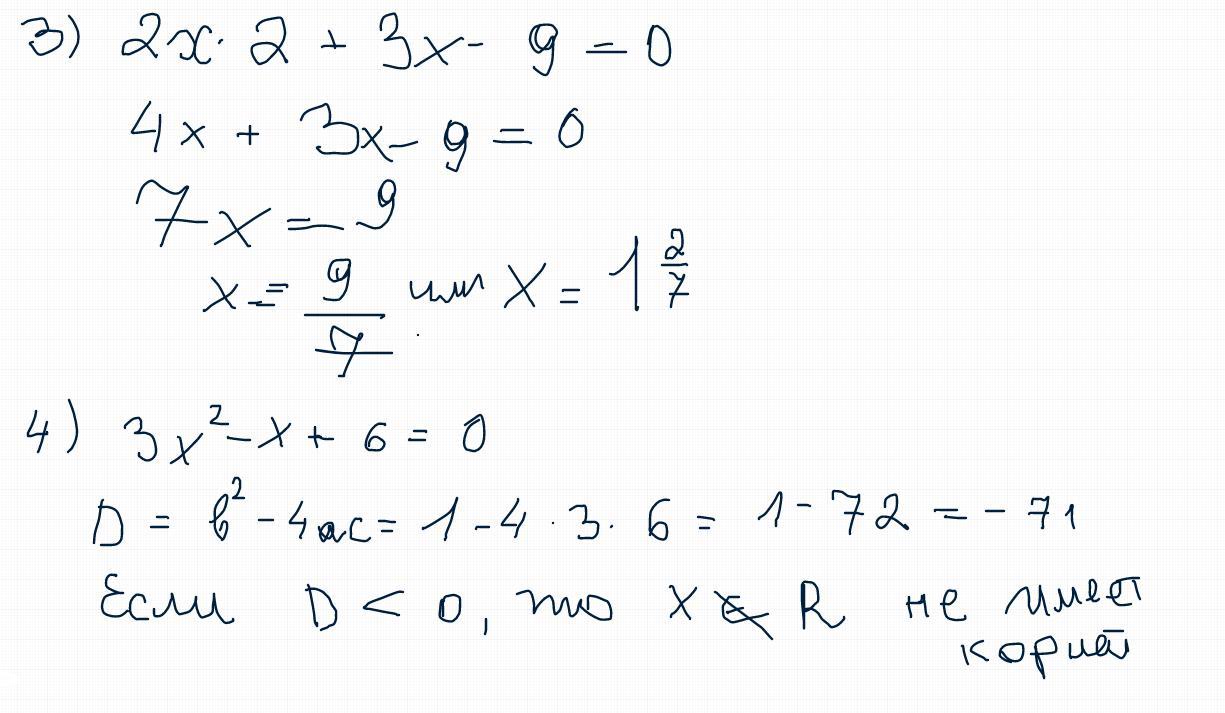 3) 2x·2 + 3x - 9 = 0
4x + 3x - 9 = 0
7x = 9
x = 9/7 или x = 1 2/7
4) 3x² - x + 6 = 0
D = b² - 4ac = 1 - 4 · 3 · 6 = 1 - 72 = - 71
Если D < 0, то x ∉ R не имеет
корней